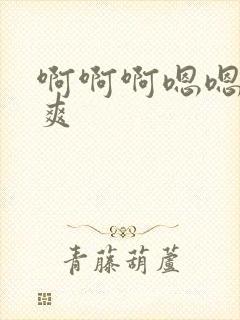 啊啊啊嗯嗯
爽
青藤葫蘆